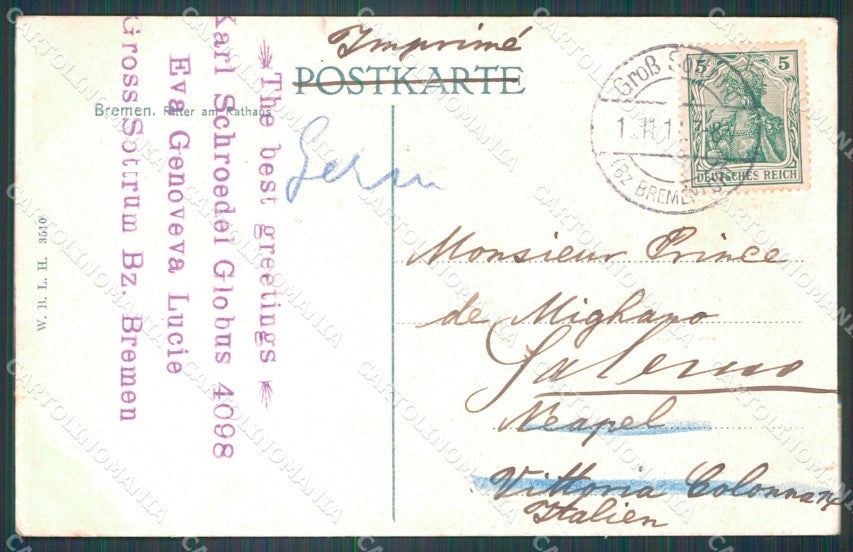 Imprimé
POSTKARTE
Bremen. Ritter am Rathaus
W. B. L. H. 3510
The best greetings
Karl Schroedel Globus 4098
Eva Genoveva Lucie
Gross Sottrum Bz. Bremen
Groß Sott
1.11.1
(Bz BREMEN)
5
DEUTSCHES REICH
Monsieur Prince
de Mighano
Salerno
Neapel
Vittoria Colonna
Italien
CARTOLINOMANIA